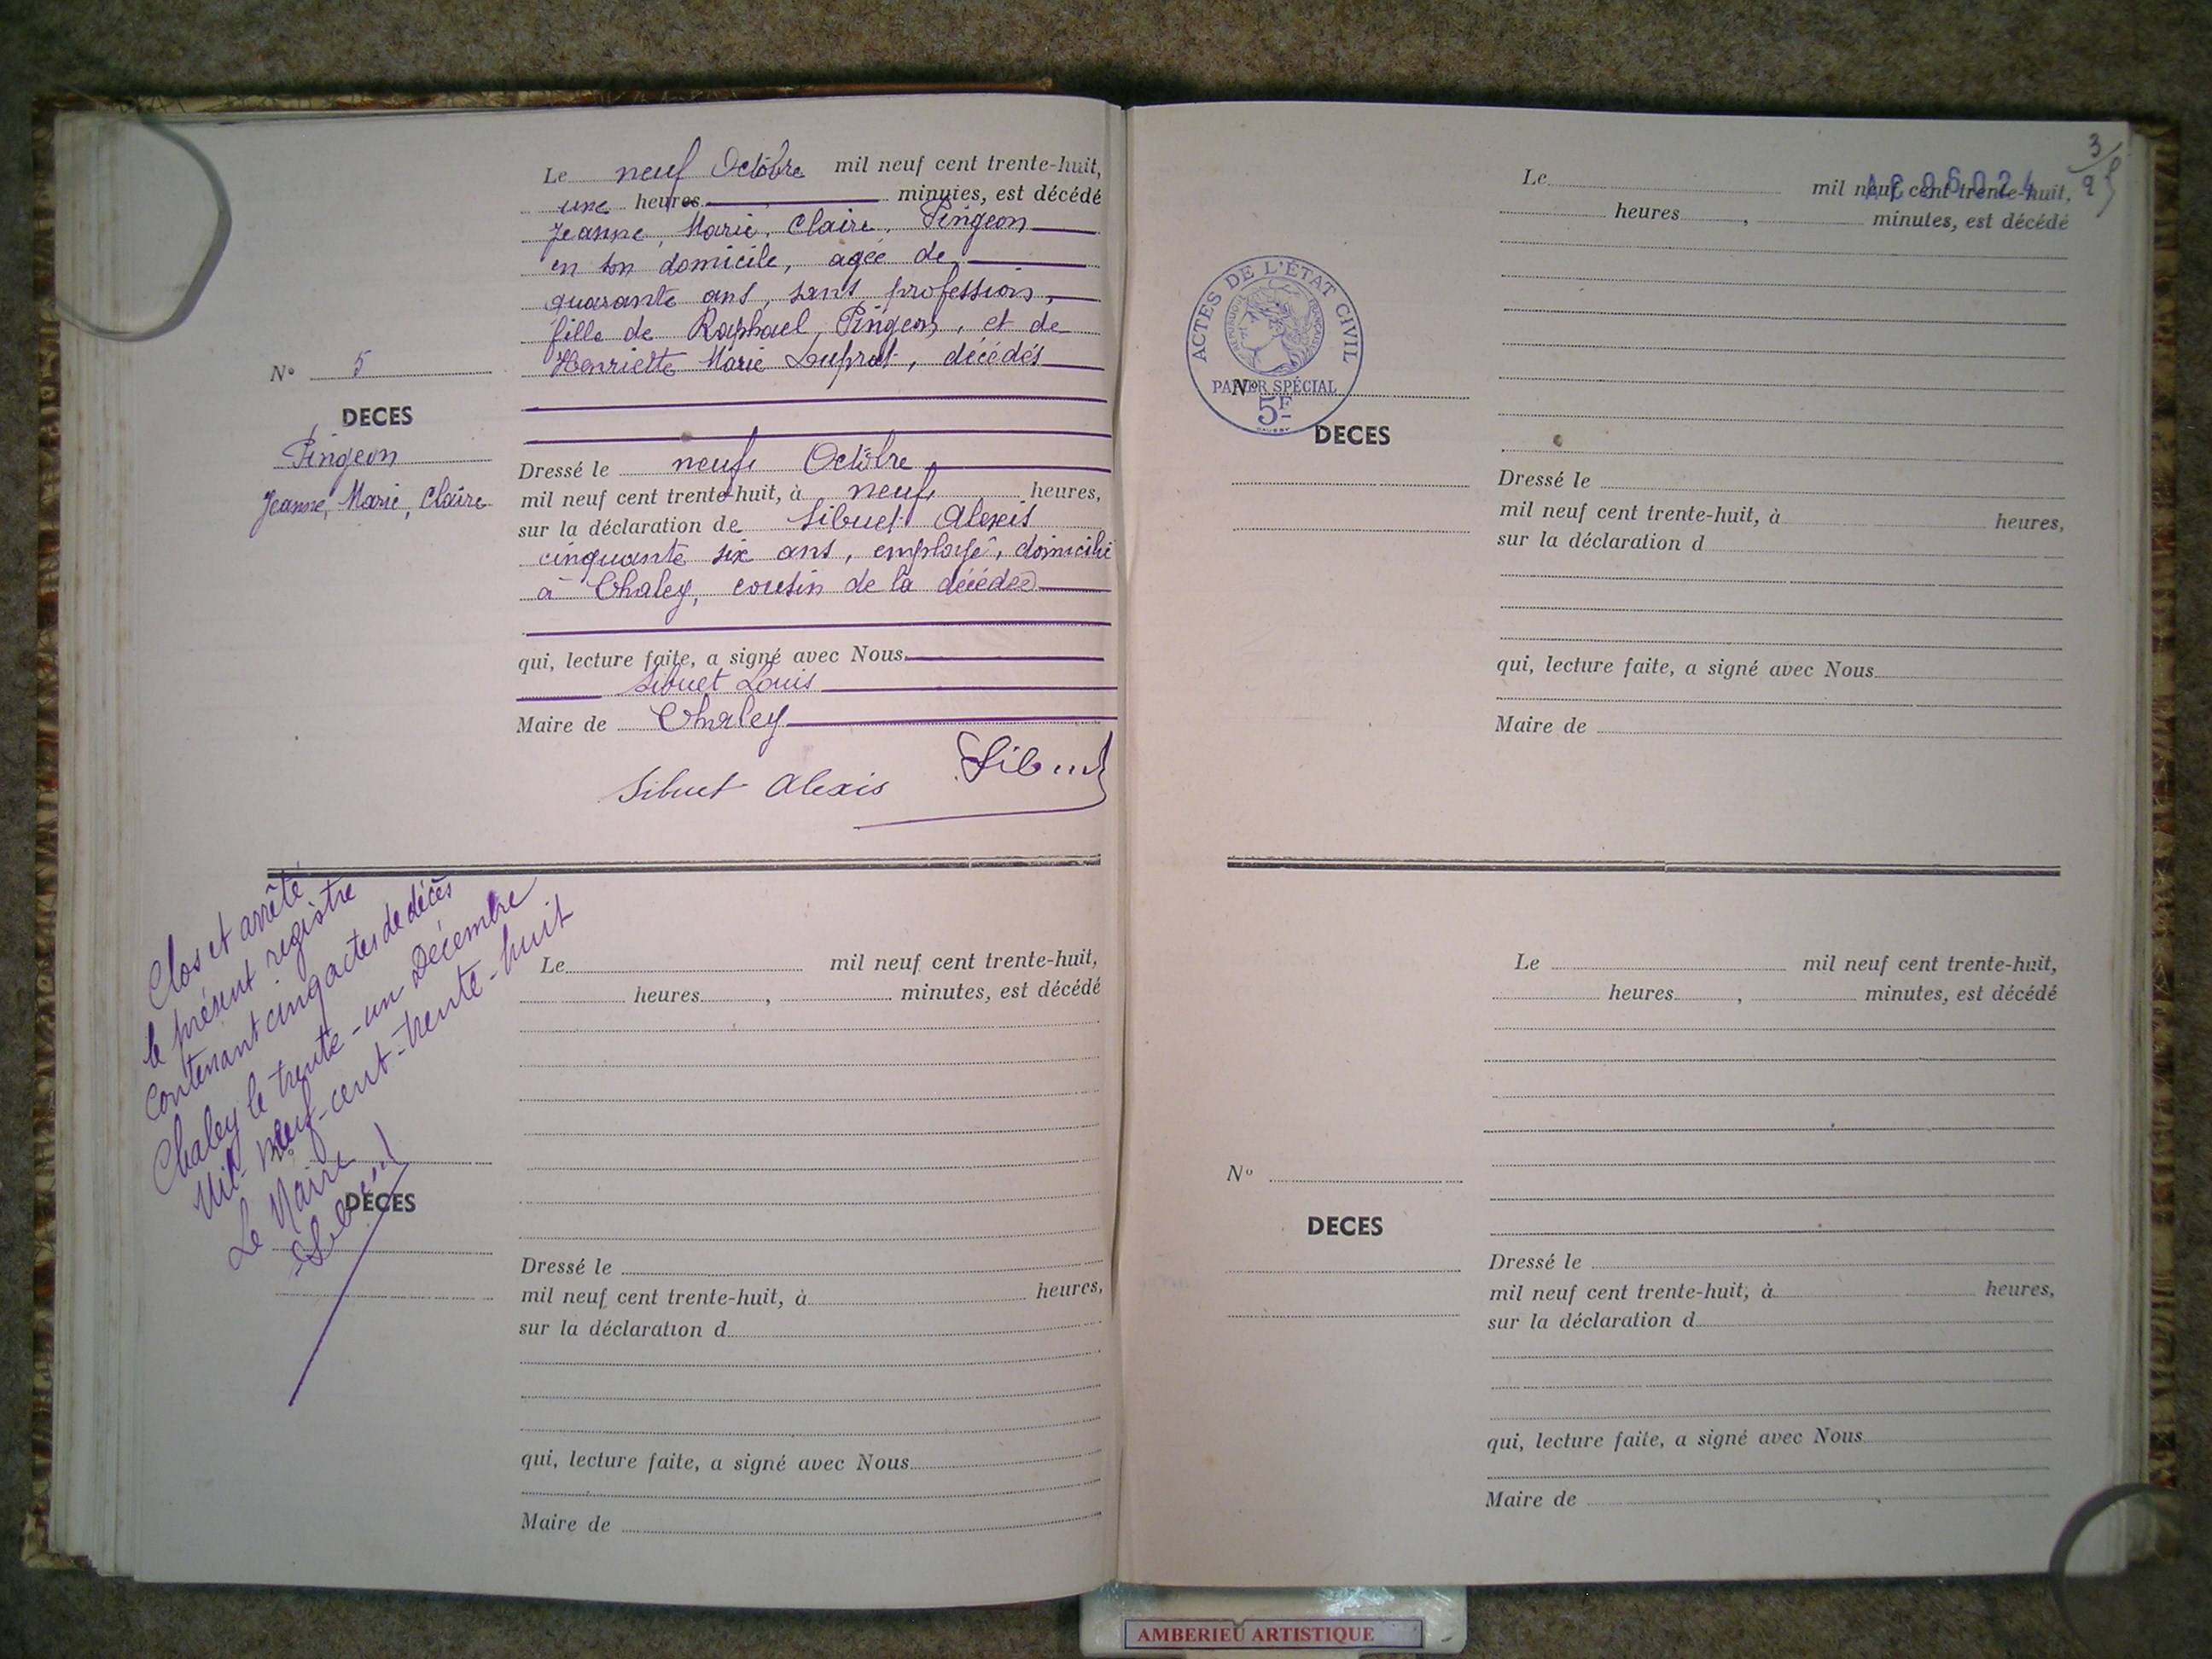 Le neuf Octobre mil neuf cent trente-huit,
une heures minutes, est décédé
Jeanne, Marie, Claire, Pingeon
en son domicile, agée de
quarante ans, sans profession,
fille de Raphael Pingeon, et de
Henriette Marie Duprat, décédés
N° 5
DECES
Pingeon
Jeanne, Marie, Claire
Dressé le neuf Octobre
mil neuf cent trente-huit, à neuf heures,
sur la déclaration de Sibuet Alexis
cinquante six ans, employé, domicilié
à Chaley, cousin de la décédée
qui, lecture faite, a signé avec Nous
Sibuet Louis
Maire de Chaley
Sibuet Alexis Sibuet
Clos et arrêté
le présent registre
contenant cinq actes de décès
Chaley le trente-un Décembre
Mil-neuf-cent-trente-huit
Le Maire
Sibuet
Le mil neuf cent trente-huit,
heures , minutes, est décédé
DECES
Dressé le
mil neuf cent trente-huit, à heures,
sur la déclaration d
qui, lecture faite, a signé avec Nous
Maire de
3/9
Le mil neuf cent trente-huit,
heures , minutes, est décédé
ACTES DE L'ÉTAT CIVIL
RÉPUBLIQUE FRANÇAISE
PAPIER SPÉCIAL
5F
N°
DECES
Dressé le
mil neuf cent trente-huit, à heures,
sur la déclaration d
qui, lecture faite, a signé avec Nous
Maire de
Le mil neuf cent trente-huit,
heures , minutes, est décédé
N°
DECES
Dressé le
mil neuf cent trente-huit, à heures,
sur la déclaration d
qui, lecture faite, a signé avec Nous
Maire de
AMBERIEU ARTISTIQUE